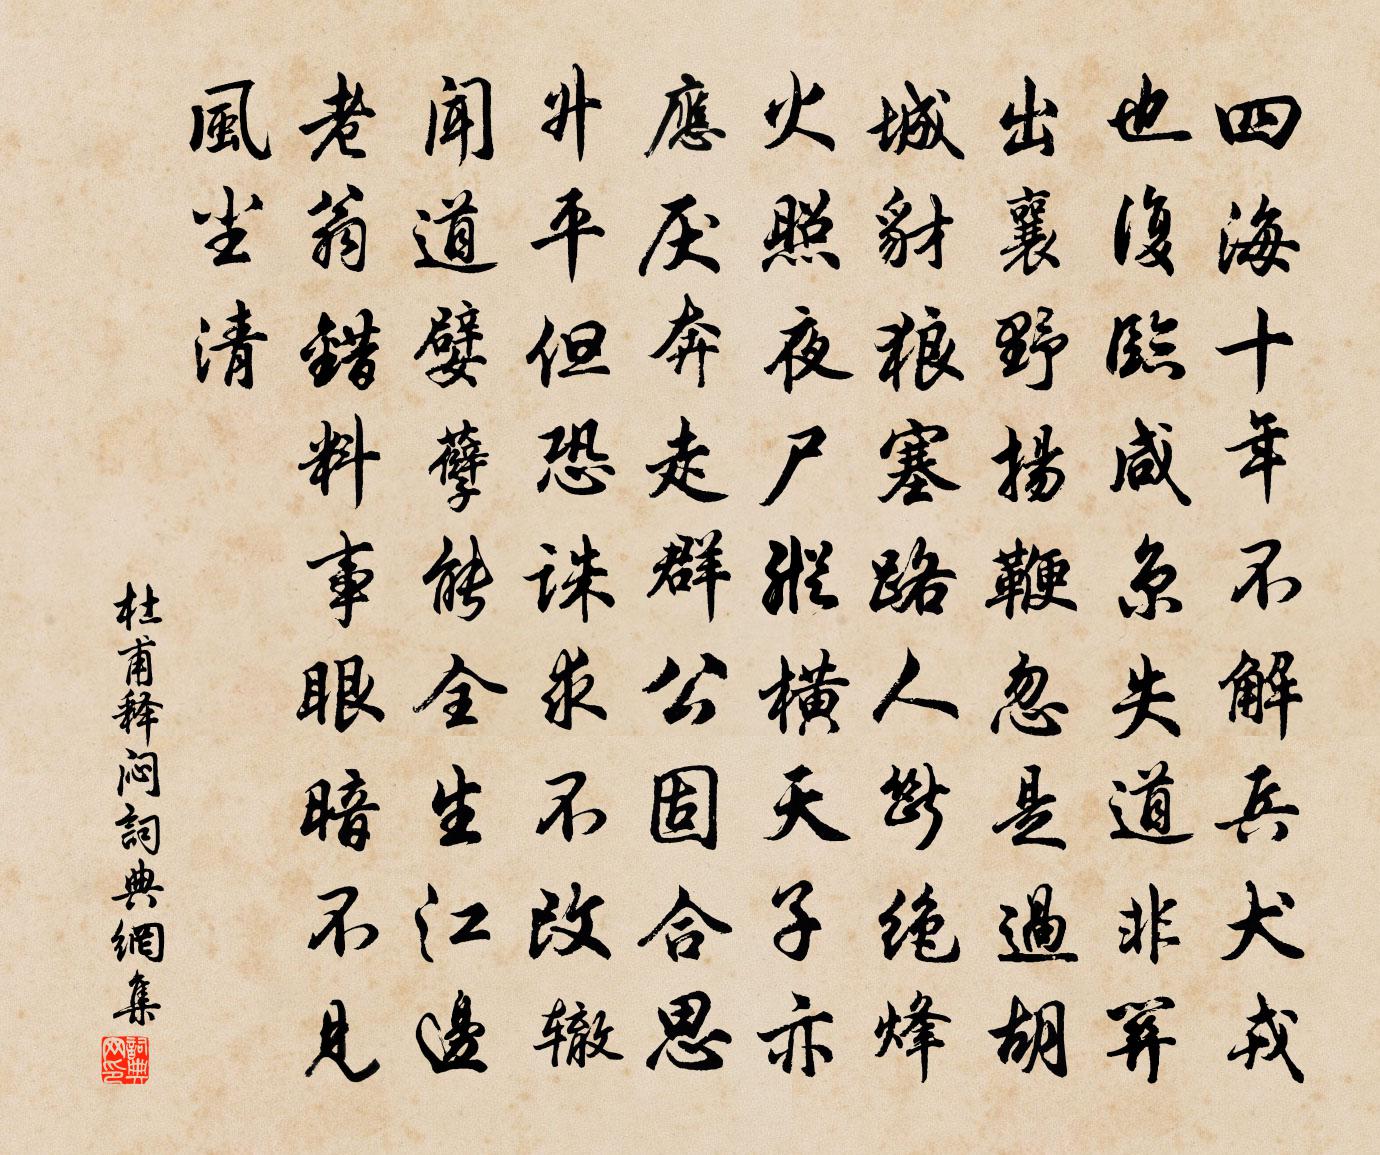 四海十年不解兵犬戎
也復臨咸京失道非關
出襄野揚鞭忽是過胡
城豺狼塞路人斷絕烽
火照夜尸縱橫天子亦
應厌奔走群公固合思
升平但恐誅求不改辙
聞道嬖孽能全生江邊
老翁錯料事眼暗不見
風尘清
杜甫释闷詞典網集
詞典网印